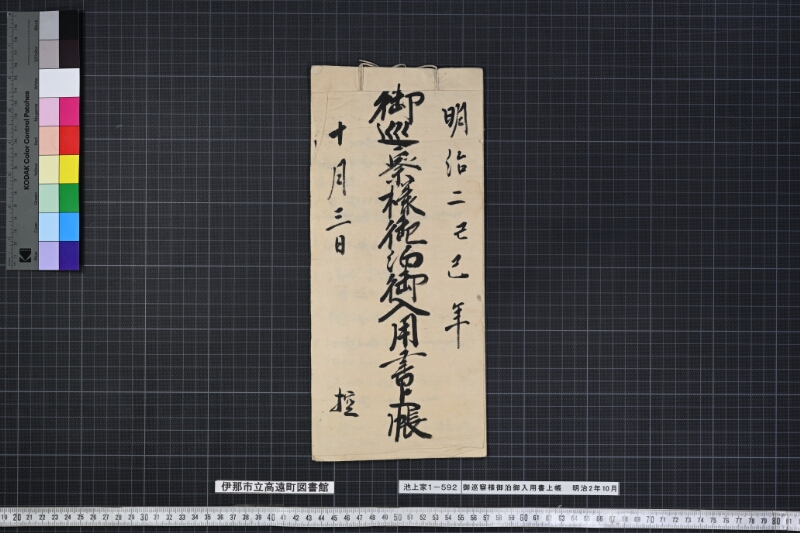 明治二つち己年
御巡察様御泊御入用書上帳
十月三日
控
伊那市立高遠町図書館
池上家1－592 御巡察様御泊御入用書上帳 明治2年10月
KODAK Color Control Patches